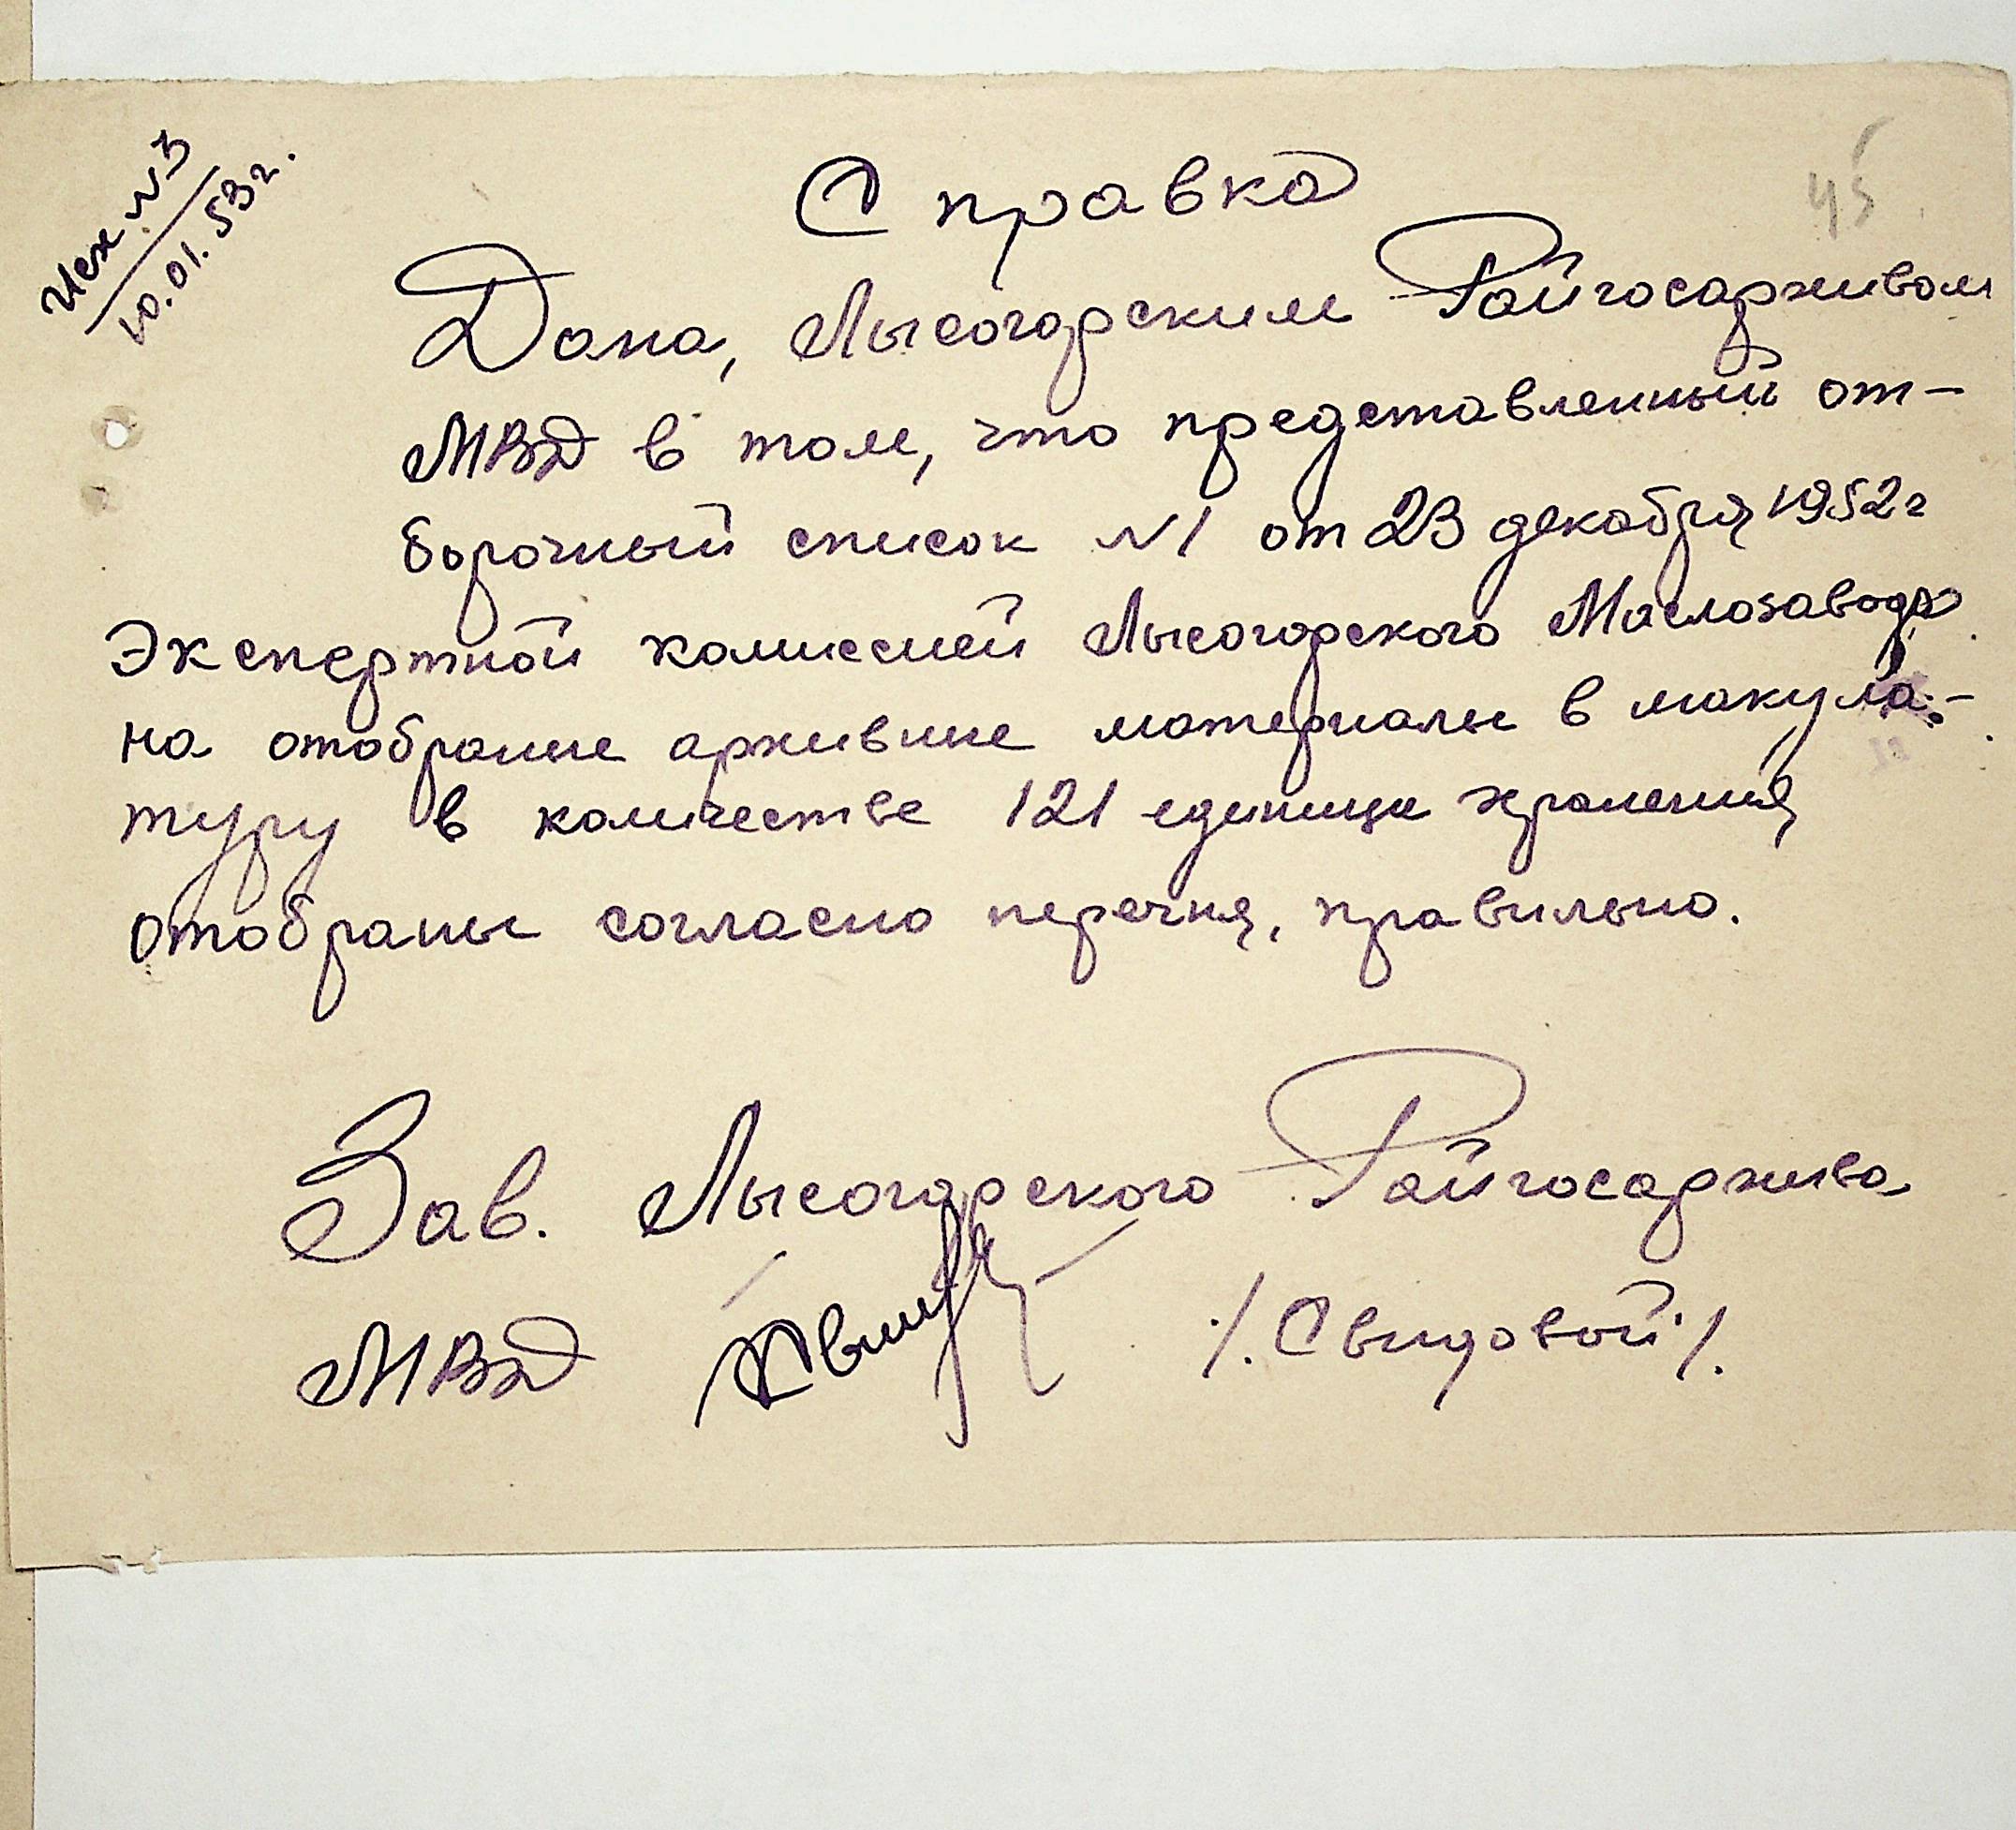 Исх №3
10.01.53г.
45
Справка
Дана, Лысогорским Райгосархивом
МВД в том, что представленный от-
борочный список №1 от 23 декабря 1952г
Экспертной комиссией Лысогорского Маслозавода
на отобраные архивные материалы в макула-
туру в количестве 121 единицы хранения
отобраны согласно перечня, правильно.
Зав. Лысогорского Райгосархива
МВД /. Свидовой /.